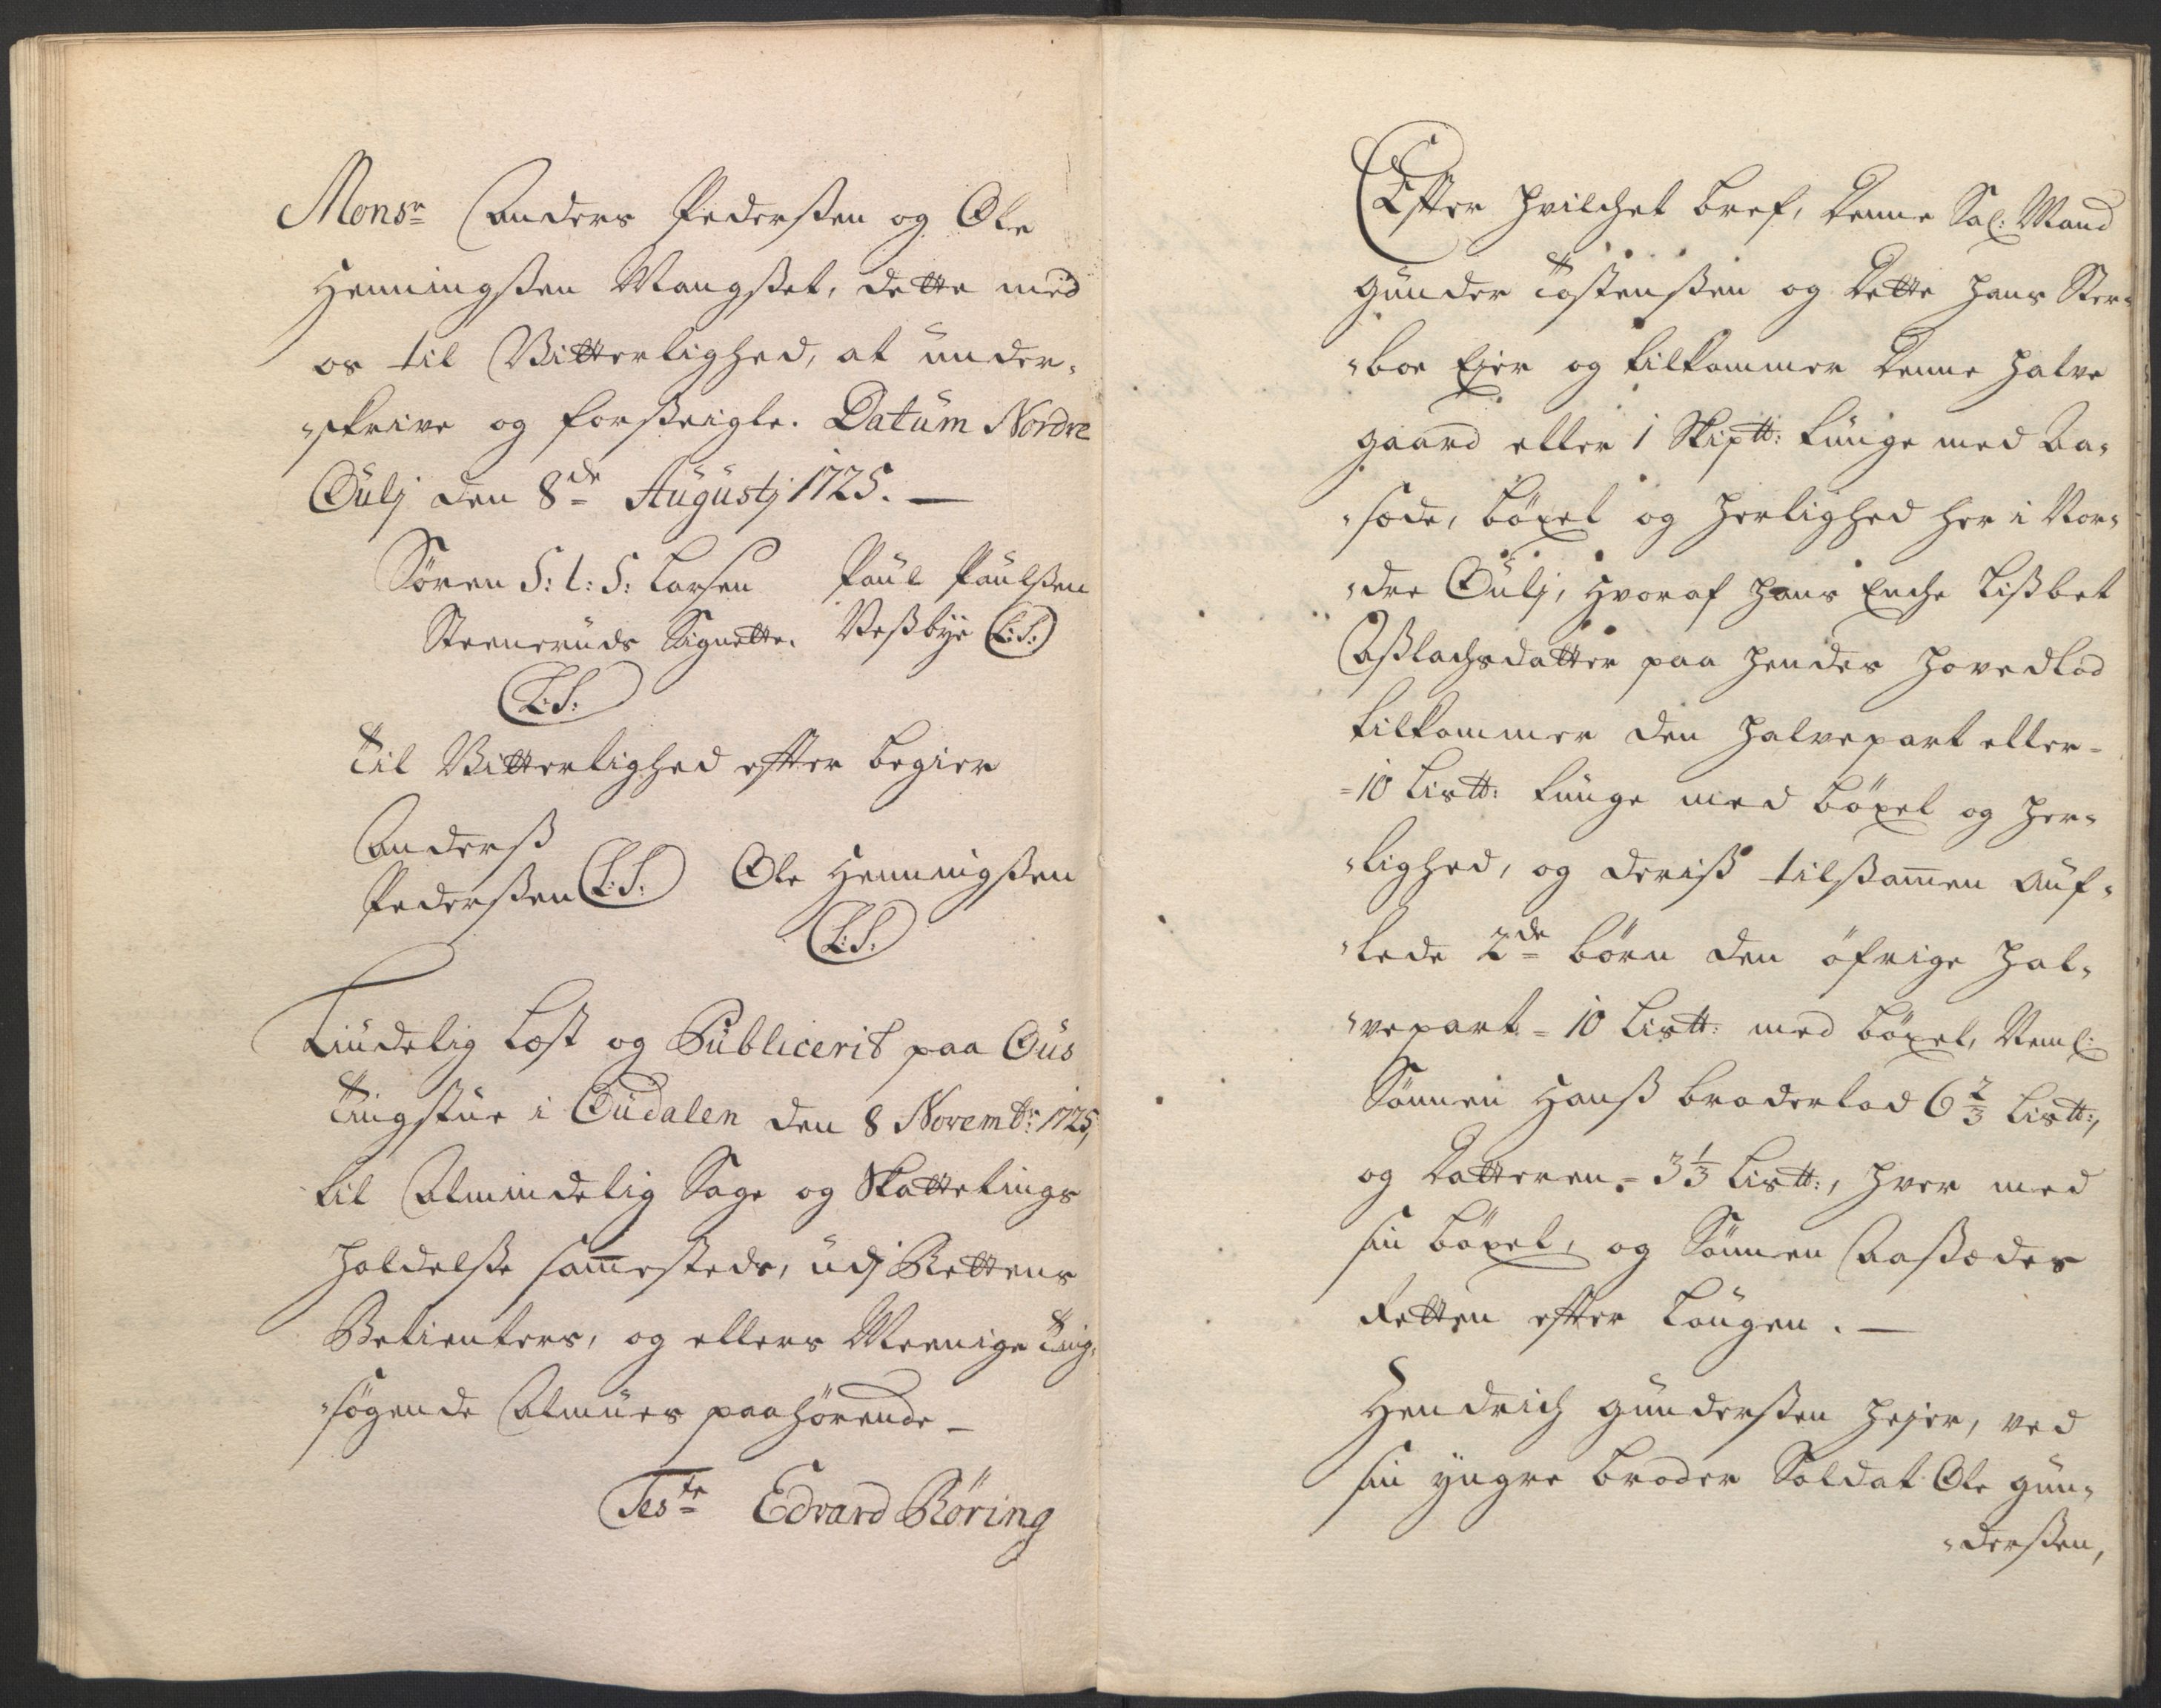 Monsr Anders Pederßen og Ole
Henningßen Wangßet, dette med
os til Vitterlighed, at under-
-skrive og forßeigle. Datum Nordre
Øulj den 8de Augustj 1725. —
Søren S: L: S: Larsen Paul Paulßen
Steneruds Signette. Neßbye (L:S:)
(L:S:)
Til Vitterlighed efter begier
Anderß
Pederßen (L:S:) Ole Henningßen
(L:S:)
Liudelig Læst og Publicerit paa Øus
Tingstue i Øudalen den 8 Novembr: 1725,
til Almindelig Sage og Skattetings
holdelße sammesteds, udj Rettens
Betienters, og ellers Meenige Ting-
-søgende Almues paahørende —
Teste Edvard Röring
Efter hvilchet bref, denne Sal: Mand
Gunder Tostenßen og dette hans Ster-
-boe Ejer og tilkommer denne halve
gaard eller 1 Skiptt: tunge med Aa-
-sæde, böxel og herlighed her i Nor-
-dre Øulj, hvoraf hans Enche Lißbet
Aßlachsdatter paa hendes hovedlod
tilkommer den halvepart eller -
- 10 Listt: tunge med böxel og her-
-lighed, og deriß tilßammen auf-
-lede 2de börn den öfrige hal-
-vepart - 10 Listt: med böxel, Neml:
Sönnen Hanß broderlod 6 2/3 Listt:,
og datteren - 3 1/3 Listt:, hver med
sin böxel, og Sönnen Aaßædes
Retten efter Laugen. —
Hendrich Gunderßen hejer, ved
sin yngre broder Soldat Ole Gun-
-derßen,